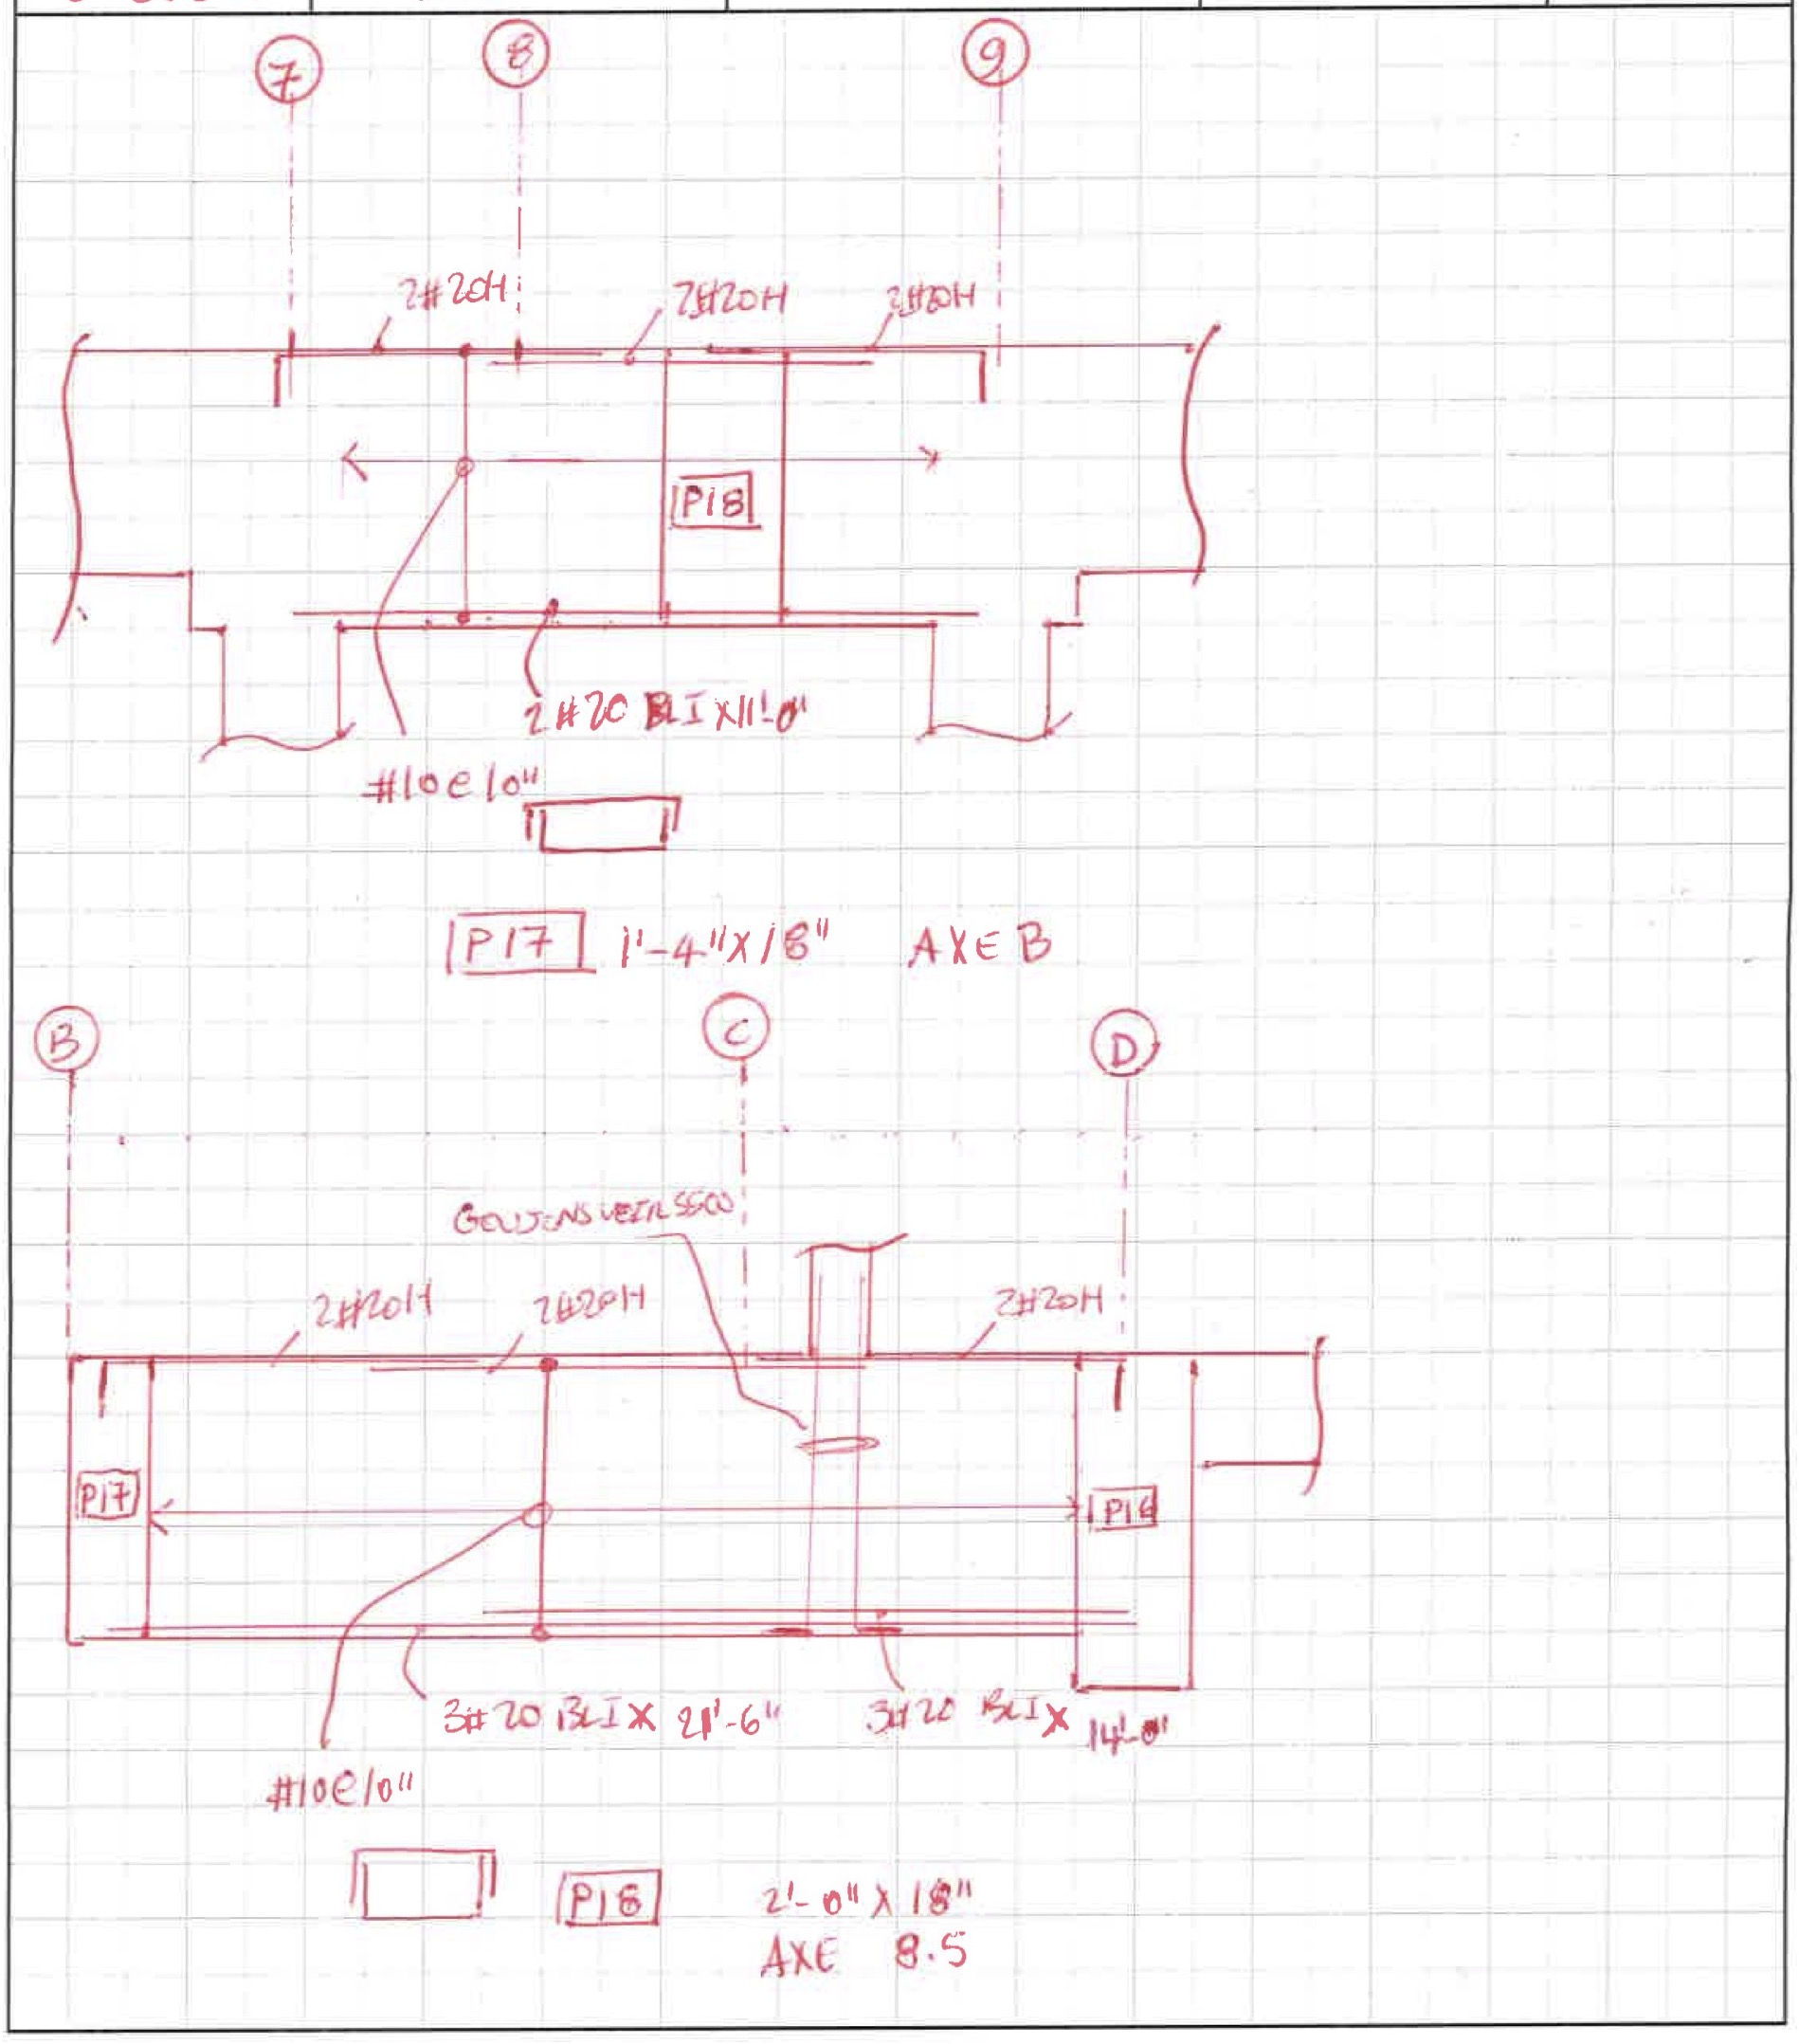 7 8 9
2#20H 2#20H 2#20H
P18
2#20 BLI X 11'-0"
#10@10"
P17 1'-4" X 18" AXE B
B C D
GOUJONS VEIR SSCO
2#20H 2#20H 2#20H
P17
3#20 BLI X 21'-6" 3#20 BLI X 14'-0"
#10@10"
P18 2'-0" X 18"
AXE 8.5